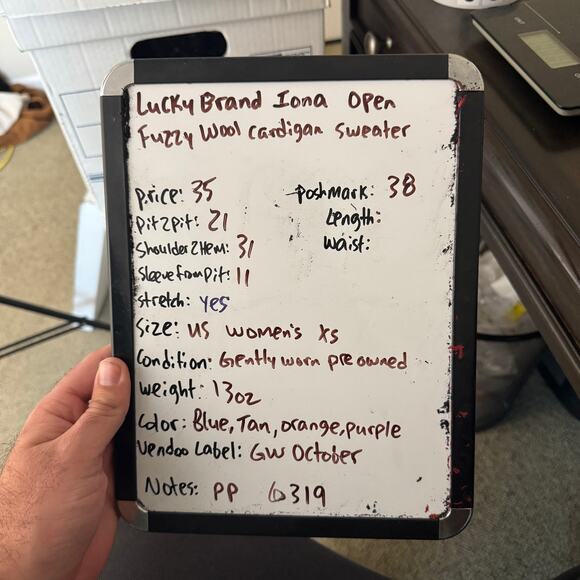 Lucky Brand Iona Open
Fuzzy Wool Cardigan Sweater
price: 35
Poshmark: 38
pit2pit: 21
Length:
Shoulder2Hem: 31
Waist:
Sleeve from pit: 11
Stretch: yes
Size: US Women's XS
Condition: Gently worn pre owned
Weight: 13oz
Color: Blue, Tan, orange, purple
Vendoo Label: GW October
Notes: PP 6319